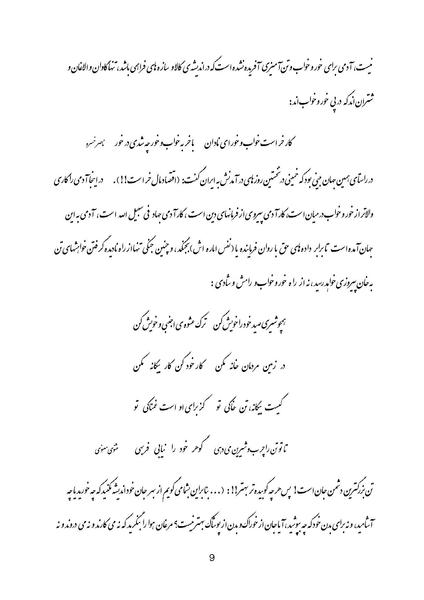 نیست، آدمی برای خور و خواب و تن آمیزی آفریده نشده است که در اندیشه ی کالا و سازه های فراهی باشد، تنها گاوان و الاغان و
شتران اند که در پی خور و خواب اند:
کار خر است خواب و خور ای نادان با خر به خواب و خور چه شدی در خور ناصر خسرو
در راستای همین جهان بینی بود که خمینی در نخستین روزهای در آمدنش به ایران گفت: (اقتصاد مال خر است!!). در اینجا آدمی را کاری
والاتر از خور و خواب در میان است، کار آدمی پیروی از فرمانهای دین است، کار آدمی جهاد فی سبیل الله است، آدمی به این
جهان آمده است تا برابر داده های حق با روان فرماینده یا (نفس اماره اش) بجنگد، و چنین جنگی تنها از راه نادیده گرفتن خواهشهای تن
به خان پیروزی خواهد رسید، نه از راه خور و خواب و رامش و شادی:
همچو شیری صید خود را خویش کن ترک عشوه ی اجنبی و خویش کن
در زمین مردمان خانه مکن کار خود کن کار بیگانه مکن
کیست بیگانه، تن خاکی تو کز برای او است غمناکی تو
تا تو تن را چرب و شیرین می دهی گوهر خود را نیابی فربهی مثنوی مولوی
تن بزرگترین دشمن جان است! پس هر چه کوبیده تر بهتر!!: (... بنابراین بشما می گویم از بهر جان خود اندیشه مکنید که چه خورید یا چه
آشامید، و نه برای بدن خود که چه بپوشید، آیا جان از خوراک و بدن از پوشاک بهتر نیست؟ مرغان هوا را بنگرید که نه می کارند و نه می دروند و نه
9